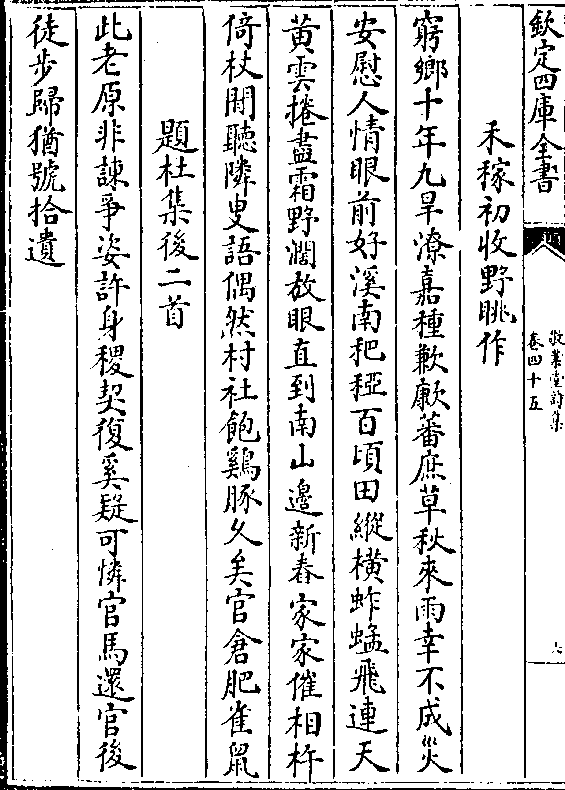 欽定四庫全書
敬業堂詩集
卷四十五
六
禾稼初收野眺作
窮鄉十年九旱潦嘉種歉歉蕃庶草秋來雨幸不成災
安慰人情眼前好溪南䆉稏百頃田縱橫蚱蜢飛連天
黃雲捲盡霜野濶放眼直到南山邊新舂家家催相杵
倚杖閒聽隣叟語偶然村社飽鷄豚久矣官倉肥雀鼠
題杜集後二首
此老原非諫爭姿許身稷契復奚疑可憐官馬還官後
徒步歸猶號拾遺